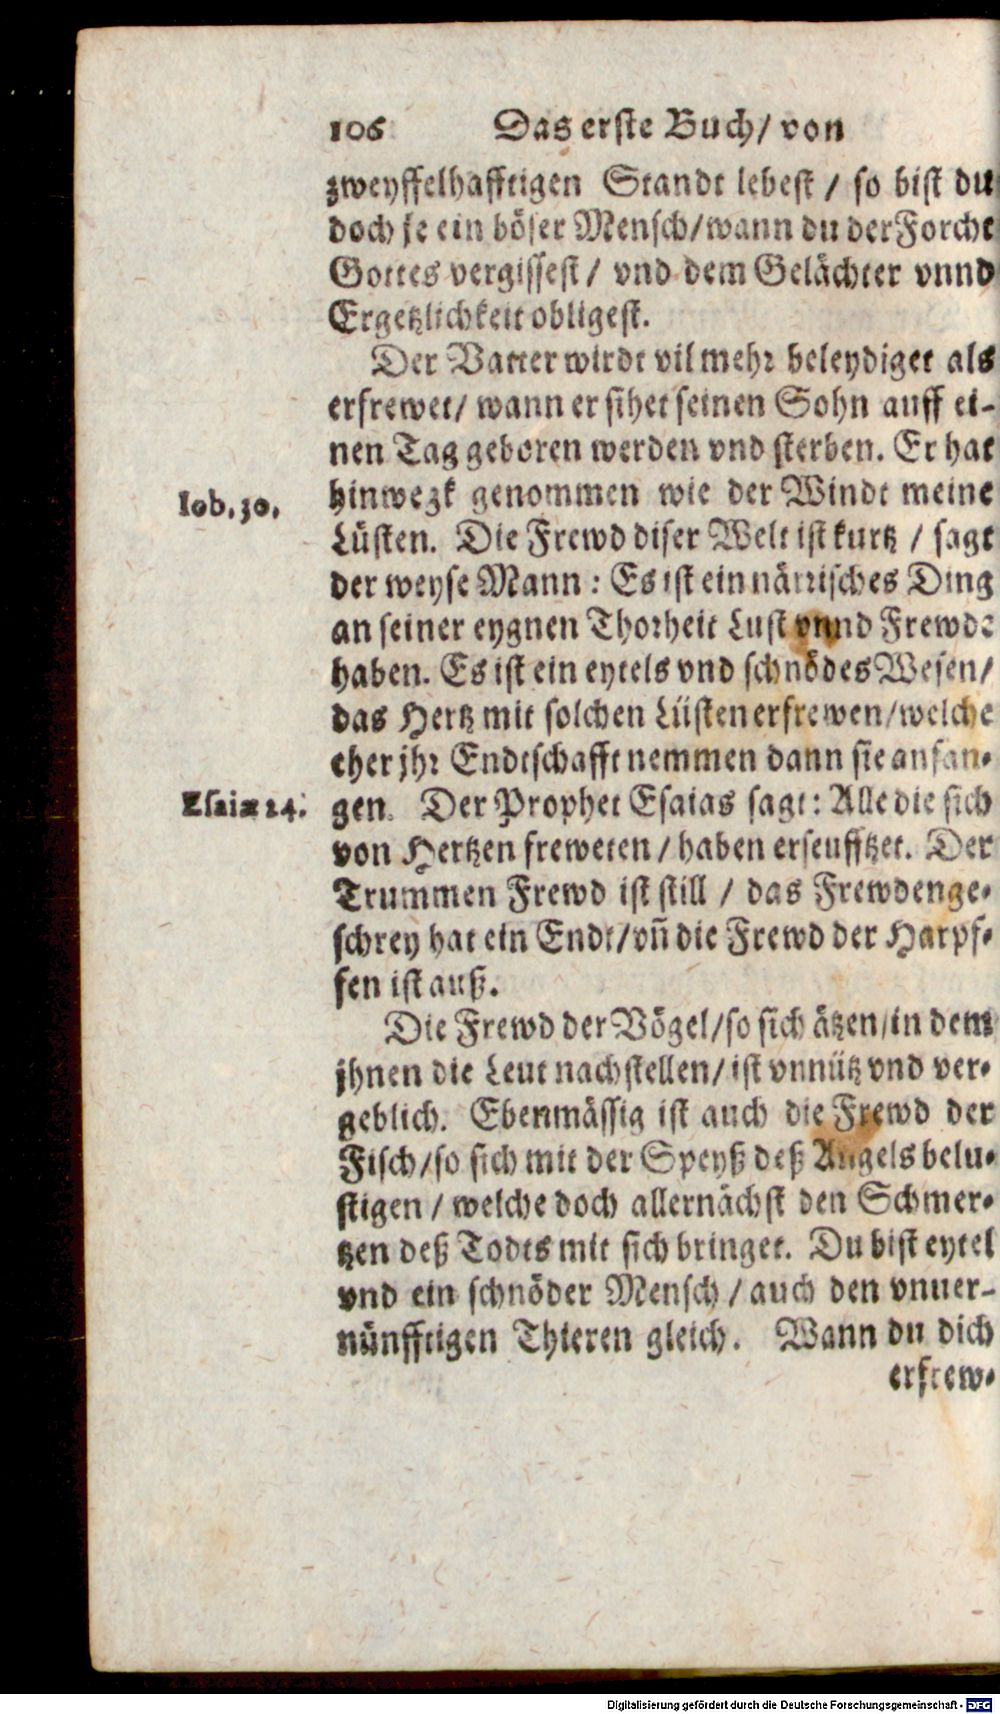 106 Das erste Buch/ von
zweyffelhafftigen Standt lebest / so bist du
doch je ein böser Mensch/wann du der Forcht
Gottes vergissest / vnd dem Gelächter vnnd
Ergetzlichkeit obligest.
Der Vatter wirdt vil mehr beleydiget als
erfrewet/ wann er sihet seinen Sohn auff ei-
nen Tag geboren werden vnd sterben. Er hat
Iob. 30.
hinwegk genommen wie der Windt meine
Lüsten. Die Frewd diser Welt ist kurtz / sagt
der weyse Mann : Es ist ein närrisches Ding
an seiner eygnen Thorheit Lust vnnd Frewde
haben. Es ist ein eytels vnd schnödes Wesen/
das Hertz mit solchen Lüsten erfrewen/welche
eher jhr Endtschafft nemmen dann sie anfan-
Esaiæ 24.
gen. Der Prophet Esaias sagt: Alle die sich
von Hertzen freweten / haben erseufftzet. Der
Trummen Frewd ist still / das Frewdenge-
schrey hat ein Endt/vñ die Frewd der Harpf-
fen ist auß.
Die Frewd der Vögel/so sich ätzen/in dem
jhnen die Leut nachstellen/ist vnnütz vnd ver-
geblich. Ebenmässig ist auch die Frewd der
Fisch/so sich mit der Speyß deß Angels belu-
stigen / welche doch allernächst den Schmer-
tzen deß Todts mit sich bringet. Du bist eytel
vnd ein schnöder Mensch / auch den vnuer-
nünfftigen Thieren gleich. Wann du dich
erfrew-
Digitalisierung gefördert durch die Deutsche Forschungsgemeinschaft - DFG